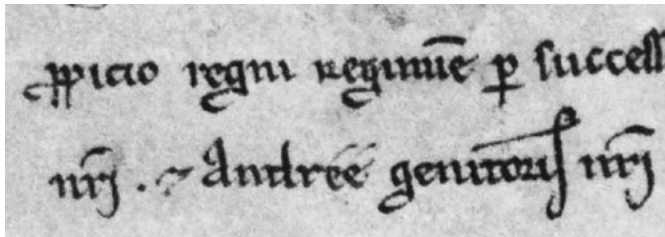 ꝓpicio regni regimīe ꝑ success
nr̄i . ⁊ Andree genitoris nr̄i